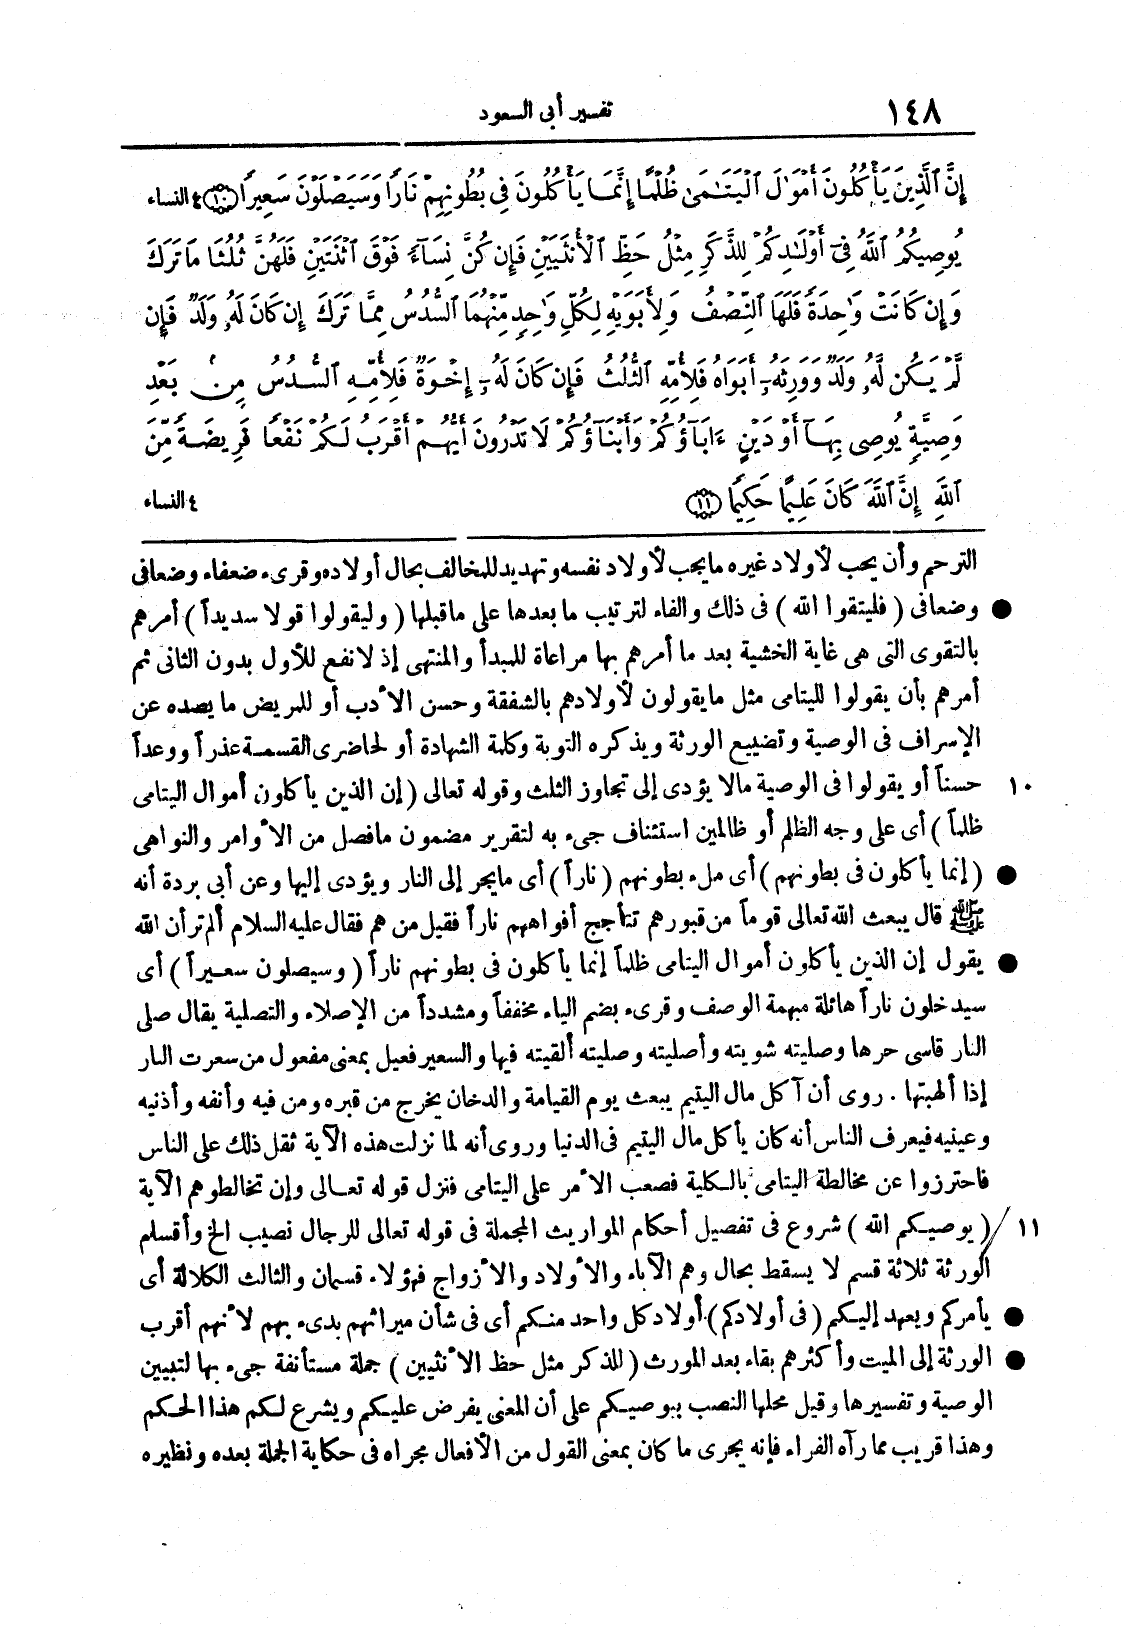 ١٤٨ تفسير أبى السعود
إِنَّ ٱلَّذِينَ يَأْكُلُونَ أَمْوَٰلَ ٱلْيَتَٰمَىٰ ظُلْمًا إِنَّمَا يَأْكُلُونَ فِى بُطُونِهِمْ نَارًا وَسَيَصْلَوْنَ سَعِيرًا ﴿١٠﴾ ٤ النساء
يُوصِيكُمُ ٱللَّهُ فِىٓ أَوْلَٰدِكُمْ لِلذَّكَرِ مِثْلُ حَظِّ ٱلْأُنثَيَيْنِ فَإِن كُنَّ نِسَآءً فَوْقَ ٱثْنَتَيْنِ فَلَهُنَّ ثُلُثَا مَا تَرَكَ
وَإِن كَانَتْ وَٰحِدَةً فَلَهَا ٱلنِّصْفُ وَلِأَبَوَيْهِ لِكُلِّ وَٰحِدٍ مِّنْهُمَا ٱلسُّدُسُ مِمَّا تَرَكَ إِن كَانَ لَهُۥ وَلَدٌ فَإِن
لَّمْ يَكُن لَّهُۥ وَلَدٌ وَوَرِثَهُۥٓ أَبَوَاهُ فَلِأُمِّهِ ٱلثُّلُثُ فَإِن كَانَ لَهُۥٓ إِخْوَةٌ فَلِأُمِّهِ ٱلسُّدُسُ مِنۢ بَعْدِ
وَصِيَّةٍ يُوصِى بِهَآ أَوْ دَيْنٍ ءَابَآؤُكُمْ وَأَبْنَآؤُكُمْ لَا تَدْرُونَ أَيُّهُمْ أَقْرَبُ لَكُمْ نَفْعًا فَرِيضَةً مِّنَ
ٱللَّهِ إِنَّ ٱللَّهَ كَانَ عَلِيمًا حَكِيمًا ﴿١١﴾ ٤ النساء
الترحم وأن يحب لأولاد غيره مايحب لأولاد نفسه وتهديد للمخالف بحال أولاده وقرىء ضعفاء وضعافى
● وضعافى ( فليتقوا الله ) فى ذلك والفاء لترتيب ما بعدها على ماقبلها ( وليقولوا قولا سديداً ) أمرهم
بالتقوى التى هى غاية الخشية بعد ما أمرهم بها مراعاة للمبدأ والمنتهى إذ لانفع للأول بدون الثانى ثم
أمرهم بأن يقولوا لليتامى مثل مايقولون لأولادهم بالشفقة وحسن الأدب أو للمريض ما يصده عن
الإسراف فى الوصية وتضييع الورثة ويذكره التوبة وكلمة الشهادة أو لحاضرى القسمة عذراً ووعداً
١٠ حسناً أو يقولوا فى الوصية مالا يؤدى إلى تجاوز الثلث وقوله تعالى ( إن الذين يأكلون أموال اليتامى
ظلماً ) أى على وجه الظلم أو ظالمين استئناف جىء به لتقرير مضمون مافصل من الأوامر والنواهى
● ( إنما يأكلون فى بطونهم ) أى ملء بطونهم ( ناراً ) أى مايجر إلى النار ويؤدى إليها وعن أبى بردة أنه
ﷺ قال يبعث الله تعالى قوماً من قبورهم تتأجج أفواههم ناراً فقيل من هم فقال عليه السلام ألم تر أن الله
● يقول إن الذين يأكلون أموال اليتامى ظلماً إنما يأكلون فى بطونهم ناراً ( وسيصلون سعيراً ) أى
سيدخلون ناراً هائلة مبهمة الوصف وقرىء بضم الياء مخففاً ومشدداً من الإصلاء والتصلية يقال صلى
النار قاسى حرها وصليته شويته وأصليته وصليته ألقيته فيها والسعير فعيل بمعنى مفعول من سعرت النار
إذا ألهبتها . روى أن آكل مال اليتيم يبعث يوم القيامة والدخان يخرج من قبره ومن فيه وأنفه وأذنيه
وعينيه فيعرف الناس أنه كان يأكل مال اليتيم فى الدنيا وروى أنه لما نزلت هذه الآية ثقل ذلك على الناس
فاحترزوا عن مخالطة اليتامى بالكلية فصعب الأمر على اليتامى فنزل قوله تعالى وإن تخالطوهم الآية
١١ ( يوصيكم الله ) شروع فى تفصيل أحكام المواريث المجملة فى قوله تعالى للرجال نصيب الخ وأقسلم
الورثة ثلاثة قسم لا يسقط بحال وهم الآباء والأولاد والأزواج فهؤلاء قسمان والثالث الكلالة أى
● يأمركم ويعهد إليكم ( فى أولادكم ) أولاد كل واحد منكم أى فى شأن ميراثهم بدىء بهم لأنهم أقرب
● الورثة إلى الميت وأكثرهم بقاء بعد المورث ( للذكر مثل حظ الأنثيين ) جملة مستأنفة جىء بها لتبيين
الوصية وتفسيرها وقيل محلها النصب بيوصيكم على أن المعنى يفرض عليكم ويشرع لكم هذا الحكم
وهذا قريب مما رآه الفراء فإنه يجرى ما كان بمعنى القول من الأفعال مجراه فى حكاية الجملة بعده ونظيره